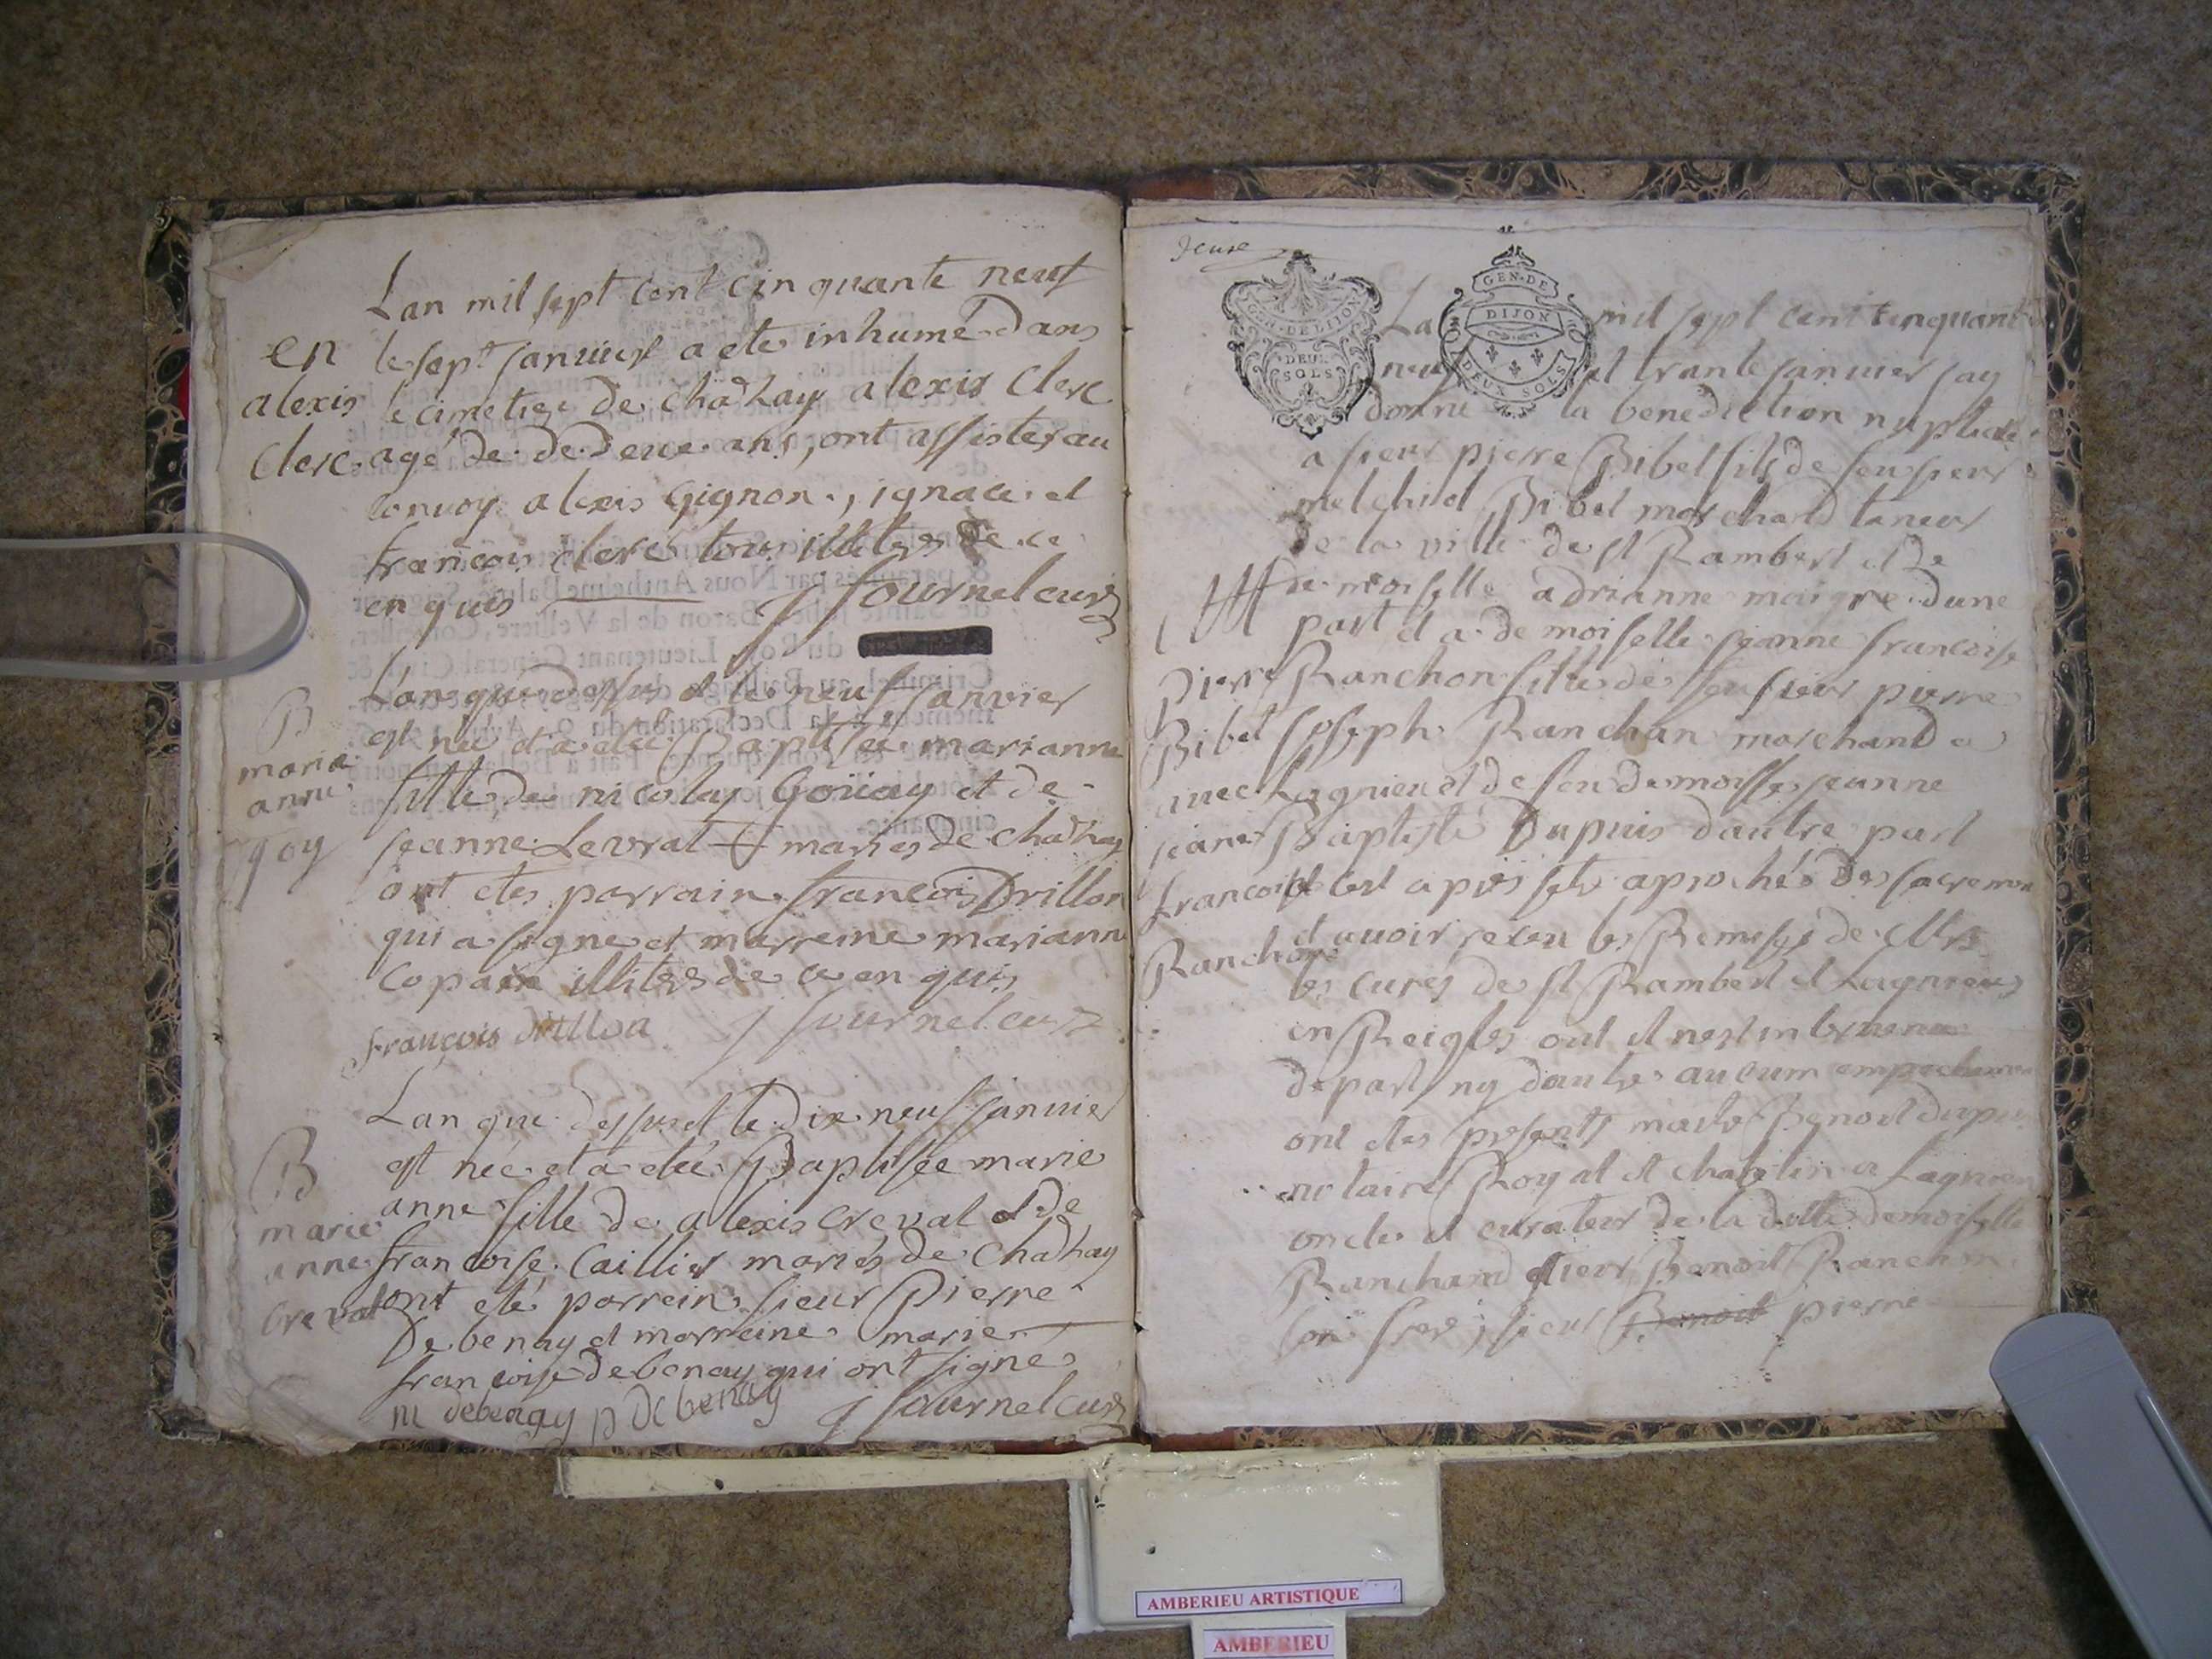 Lan mil sept cent cinquante neuf
en le sept janvier a ete inhumé dans
alexis le cimetiere de chathay alexis Clerc
Clerc agé de de deux ans, ont assistes au
convoy alexis Gignon, ignace et
francois clerc tous illiteres de ce
enquis J fournel curé
L'an que dessus et le neuf janvier
B est née et a eté Baptisée marianne
maria fille de nicolas Goüay et de
anne jeanne Levrat maries de chathay
goy ont etes parrain francois Drillon
qui a signe et marreine marianne
illiteres de ce enquis
françois drillon J fournel curé
Lan que dessus et le dix neuf janvier
B est née et a eté Baptisée marie
marie anne fille de alexis creval et de
anne francoise Caillier mariés de chathay
creval ont eté parrein sieur Pierre
Debenay et marreine marie
francoise debenay qui ont signe
m debenay p Debenay J fournel curé
deuxe
GEN. DE DIJON
DEUX SOLS
GEN. DE
DIJON
DEUX SOLS
Lan mil sept cent cinquante
neuf et trante janvier jay
donné la benediction nuptiale
a sieur pierre Bibet fils de feu sieur
melchiol Bibet marchand taneur
de la ville de st Rambert et de
de moiselle adrianne maigre dune
part et a de moiselle jeanne francoise
Pierre Ranchon fille de feu sieur pierre
Bibet joseph Ranchon marchand a
avec Lagnieu et de feu demoiselle jeanne
jeane Baptiste Dupuis dautre part
francoise et cest apres setre aprochés des sacremen
Ranchon et avoir receu les Remises de Mrs
les curés de st Rambert et Lagnieu
en Reigles ont il nest intervenu
de part ny dautre aucun empechemen
ont etes presents maitre Benoit dupuis
notaire Royal et chatelin a Lagnieu
oncle et curateur de la ditte demoiselle
Ranchand sieur Benoit Ranchon
son frere, sieur Benoit pierre
AMBERIEU ARTISTIQUE
AMBERIEU